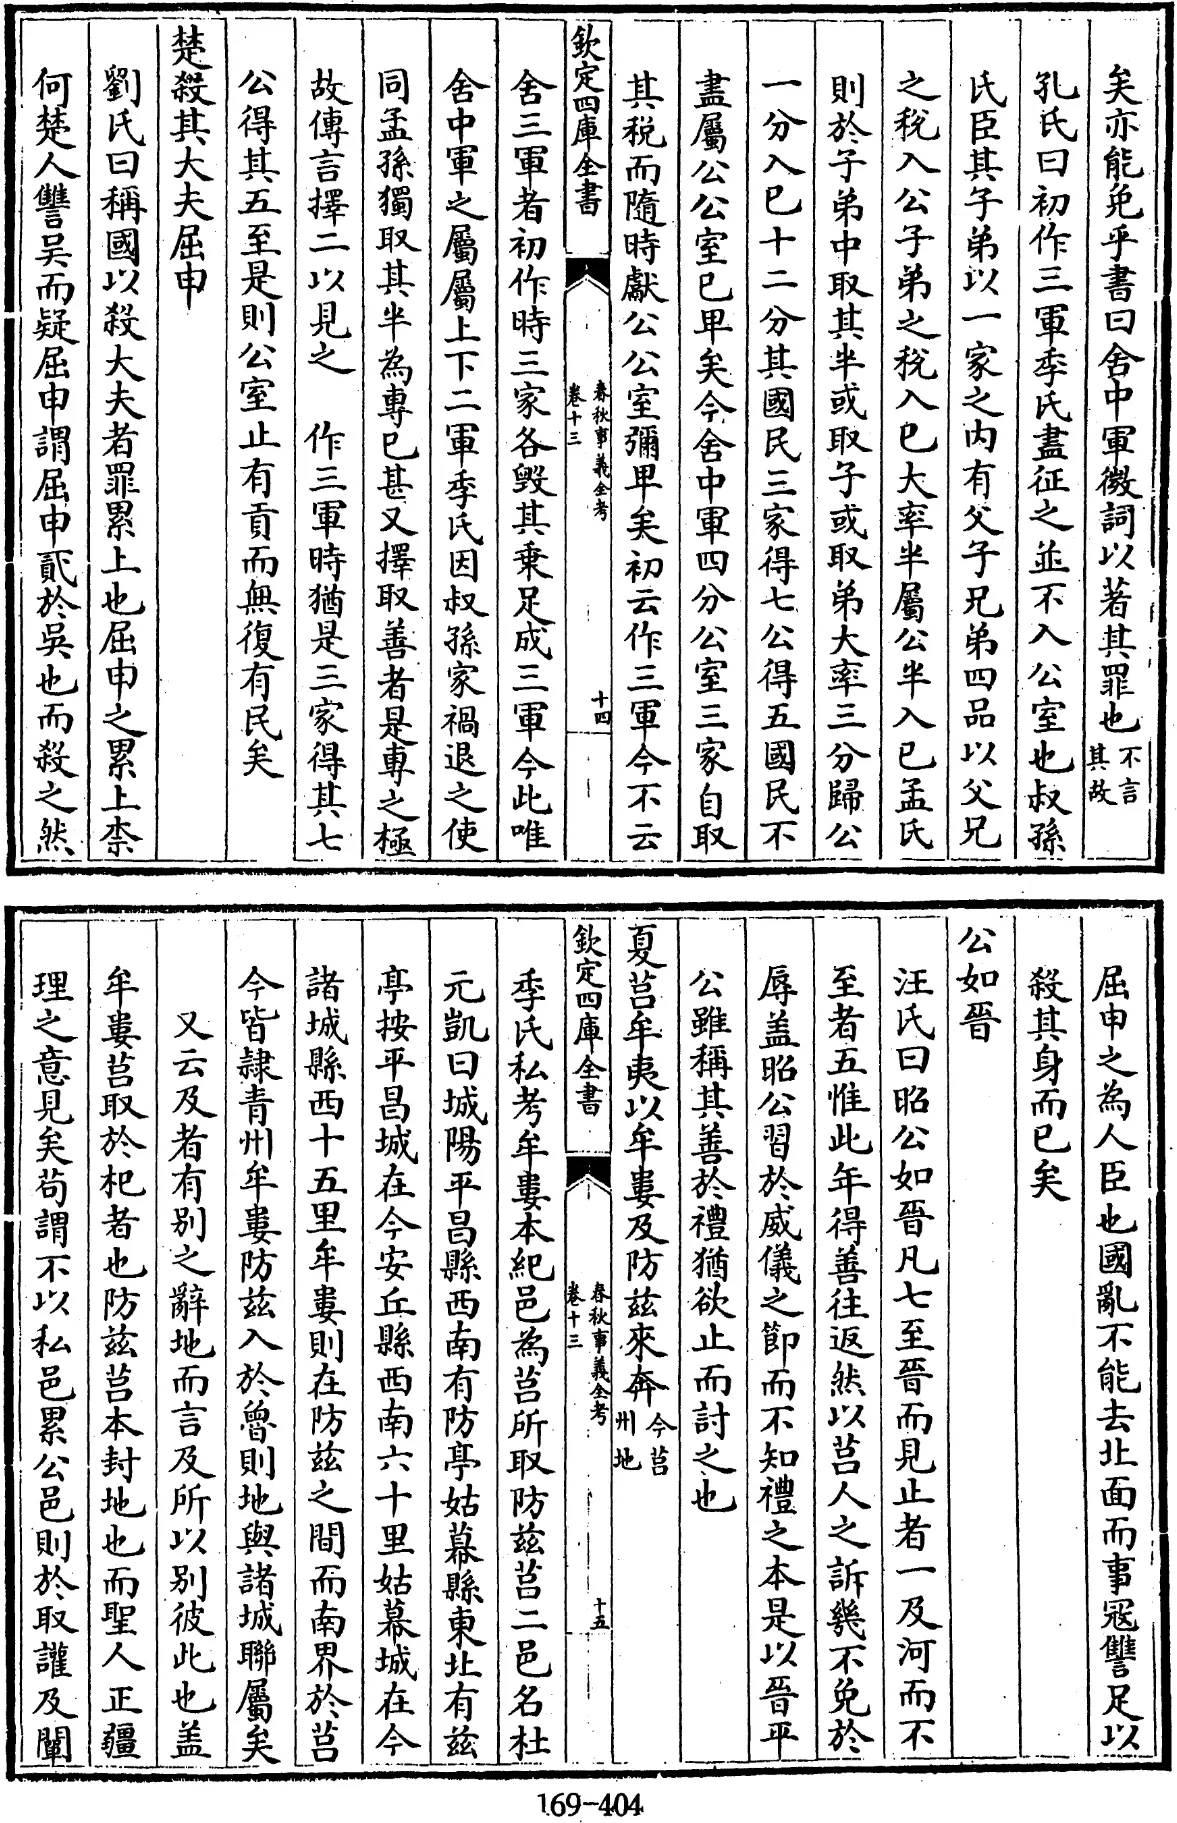 矣亦能免乎書曰舍中軍微詞以著其罪也不言其故
孔氏曰初作三軍季氏盡征之並不入公室也叔孫
氏臣其子弟以一家之內有父子兄弟四品以父兄
之稅入公子弟之稅入已大率半屬公半入已孟氏
則於子弟中取其半或取子或取弟大率三分歸公
一分入已十二分其國民三家得七公得五國民不
盡屬公公室已卑矣今舍中軍四分公室三家自取
其稅而隨時獻公公室彌卑矣初云作三軍今不云
欽定四庫全書
春秋事義全考
卷十三
十四
舍三軍者初作時三家各毀其乘足成三軍今此唯
舍中軍之屬屬上下二軍季氏因叔孫家禍退之使
同孟孫獨取其半為專已甚又擇取善者是專之極
故傳言擇二以見之 作三軍時猶是三家得其七
公得其五至是則公室止有貢而無復有民矣
楚殺其大夫屈申
劉氏曰稱國以殺大夫者罪累上也屈申之累上柰
何楚人讐吴而疑屈申謂屈申貳於吳也而殺之然
屈申之為人臣也國亂不能去北面而事冦讐足以
殺其身而已矣
公如晉
汪氏曰昭公如晉凡七至晉而見止者一及河而不
至者五惟此年得善往返然以莒人之訴幾不免於
辱盖昭公習於威儀之節而不知禮之本是以晉平
公雖稱其善於禮猶欲止而討之也
夏莒牟夷以牟婁及防兹來奔今莒州地
欽定四庫全書
春秋事義全考
卷十三
十五
季氏私考牟婁本紀邑為莒所取防兹莒二邑名杜
元凱曰城陽平昌縣西南有防亭姑幕縣東北有兹
亭按平昌城在今安丘縣西南六十里姑幕城在今
諸城縣西十五里牟婁則在防兹之間而南界於莒
今皆隸青州牟婁防兹入於魯則地與諸城聯屬矣
又云及者有别之辭地而言及所以别彼此也盖
牟婁莒取於杞者也防兹莒本封地也而聖人正疆
理之意見矣苟謂不以私邑累公邑則於取讙及闡
169-404